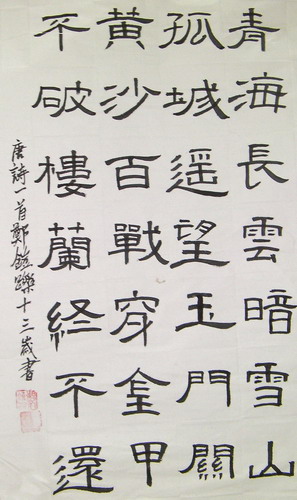 青海長雲暗雪山
孤城遥望玉門關
黄沙百戰穿金甲
不破樓蘭終不還
唐詩一首鄭十三歲書